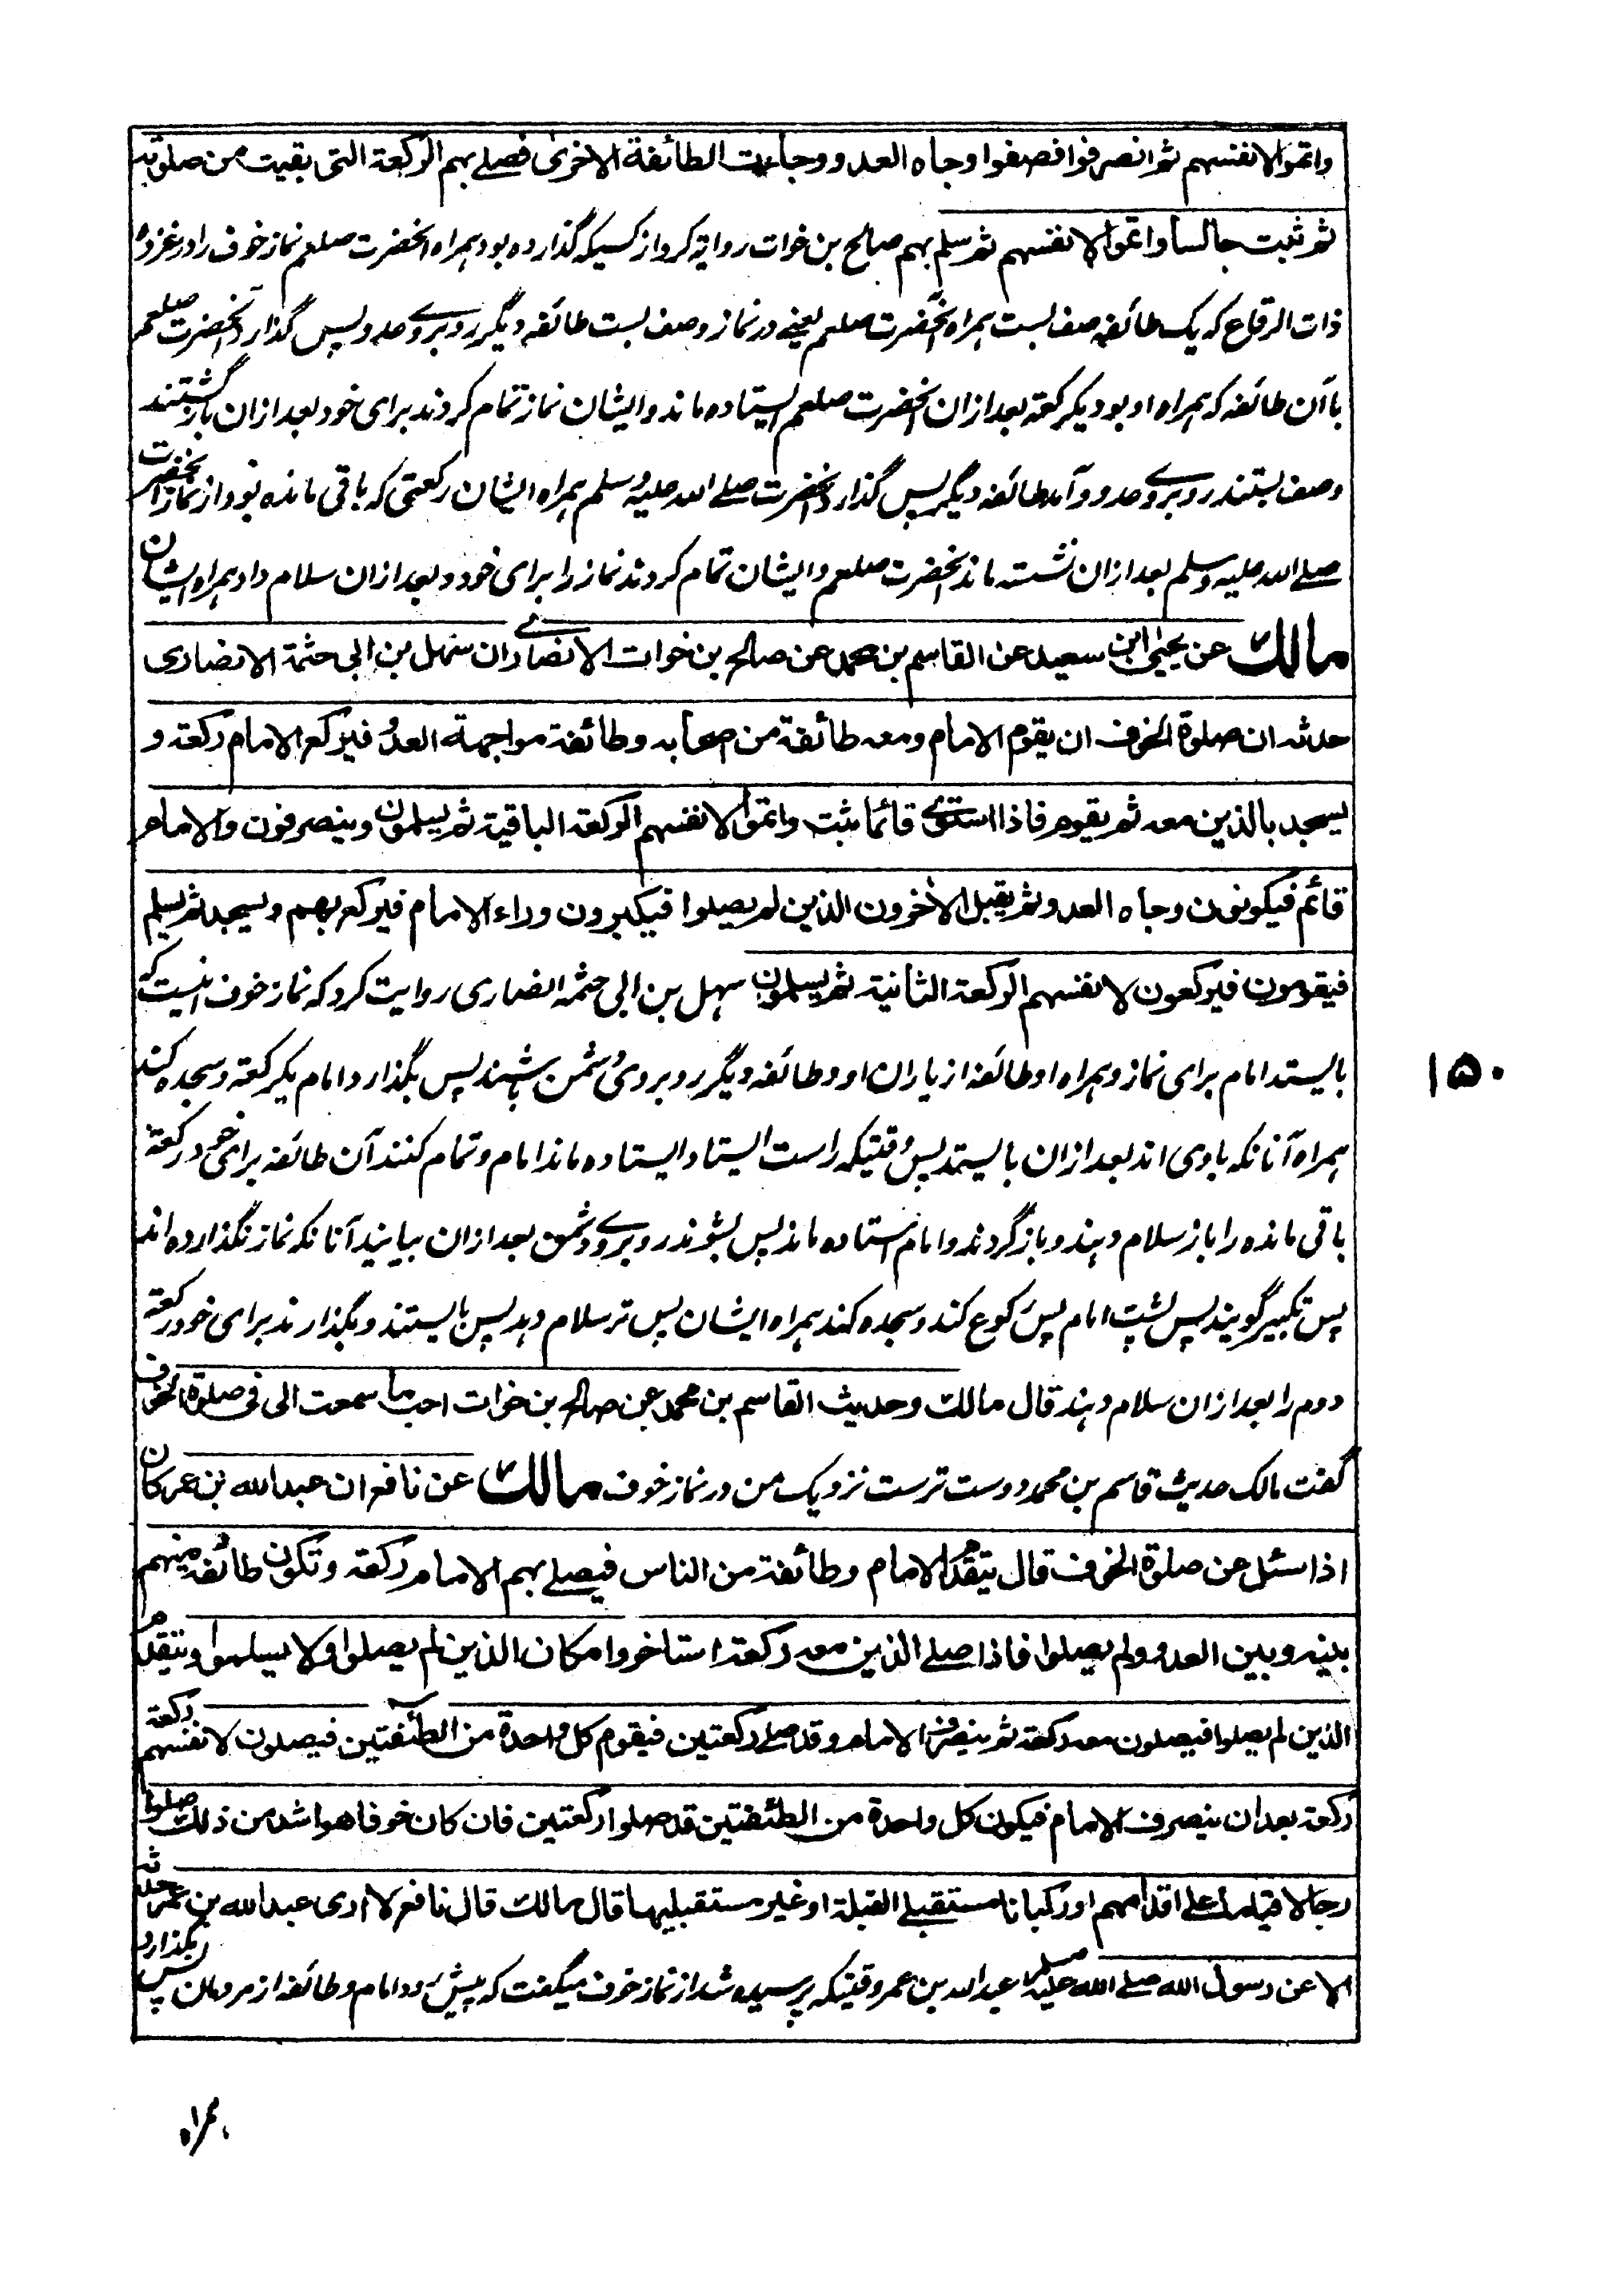 واتموا لانفسهم ثم انصرفوا فصفوا وجاه العدو وجاءت الطائفة الاخرى فصلے بهم الركعة التى بقيت من صلوته
ثم ثبت جالسا واتموا لانفسهم ثم سلم بهم صالح بن خوات روایة کرد از کسیکه گذارده بود همراه آنحضرت صلعم نماز خوف را در غزوهٔ
ذات الرقاع که یک طائفه صف بست همراه آنحضرت صلعم یعنے در نماز وصف بست طائفه دیگر روبروے عدو پس گذارد آنحضرت صلعم
با آن طائفه که همراه او بود یک رکعة بعد ازان آنحضرت صلعم ایستاده ماند و ایشان نماز تمام کردند برای خود بعد ازان بازگشتند
وصف بستند روبروے عدو و آمد طائفه دیگر پس گذارد آنحضرت صلے الله علیه وسلم همراه ایشان رکعتی که باقی مانده بود از نماز آنحضرت
صلے الله علیه وسلم بعد ازان نشسته ماند آنحضرت صلعم و ایشان تمام کردند نماز را برای خود و بعد ازان سلام داد همراه ایشان
مالك عن يحيى ابن سعيد عن القاسم بن محمد عن صالح بن خوات الانصارے ان سهل بن ابى حثمة الانصارى
حدثه ان صلوة الخوف ان يقوم الامام ومعه طائفة من اصحابه وطائفة مواجهة العدو فيركع الامام ركعة و
يسجد بالذين معه ثم يقوم فاذا استوى قائما ثبت واتموا لانفسهم الركعة الباقية ثم يسلمون وينصرفون والامام
قائم فيكونون وجاه العدو ثم يقبل الاخرون الذين لم يصلوا فيكبرون وراء الامام فيركع بهم ويسجد ثم يسلم
فيقومون فيركعون لانفسهم الركعة الثانية ثم يسلمون سهل بن ابی حثمه انصاری روایت کرد که نماز خوف اینست که
بایستد امام برای نماز و همراه او طائفه از یاران او و طائفه دیگر روبروی دشمن باشند پس بگذارد امام یک رکعة و سجده کند
همراه آنانکه با وی اند بعد ازان بایستد پس وقتیکه راست ایستاد ایستاده ماند امام و تمام کنند آن طائفه برای خود رکعة
باقی مانده را باز سلام دهند و باز گردند و امام استاده ماند پس بشوند روبروے دشمن بعد ازان بیایند آنانکه نماز نگذارده اند
پس تکبیر گویند پس پشت امام پس رکوع کند و سجده کند همراه ایشان پس تر سلام دهد پس بایستند و بگذارند برای خود رکعة
دوم را بعد ازان سلام دهند قال مالك وحديث القاسم بن محمد عن صالح بن خوات احب ما سمعت الى فى صلوة الخوف
گفت مالک حدیث قاسم بن محمد دوست ترست نزدیک من در نماز خوف مالك عن نافع ان عبد الله بن عمر كان
اذا سئل عن صلوة الخوف قال يتقدم الامام وطائفة من الناس فيصلے بهم الامام ركعة وتكون طائفة منهم
بينه وبين العدو ولم يصلوا فاذا صلے الذين معه ركعة استاخروا مكان الذين لم يصلوا ولا يسلموا ويتقدم
الذين لم يصلوا فيصلون معه ركعة ثم ينصرف الامام وقد صلے ركعتين فيقوم كل واحدة من الطائفتين فيصلون لانفسهم ركعة
ركعة بعد ان ينصرف الامام فيكون كل واحدة من الطئفتين قد صلوا ركعتين فان كان خوفا هوا شد من ذلك صلوا
رجالا قياما على اقدامهم او ركبانا مستقبلے القبلة او غير مستقبليها قال مالك قال نافع لا ارى عبد الله بن عمر حدثه
الا عن رسول الله صلے الله عليه وسلم عبد الله بن عمر وقتیکه پرسیده شد از نماز خوف میگفت که پیش رود امام و طائفه از مردمان پس بگذارد
۱۵۰
همراه